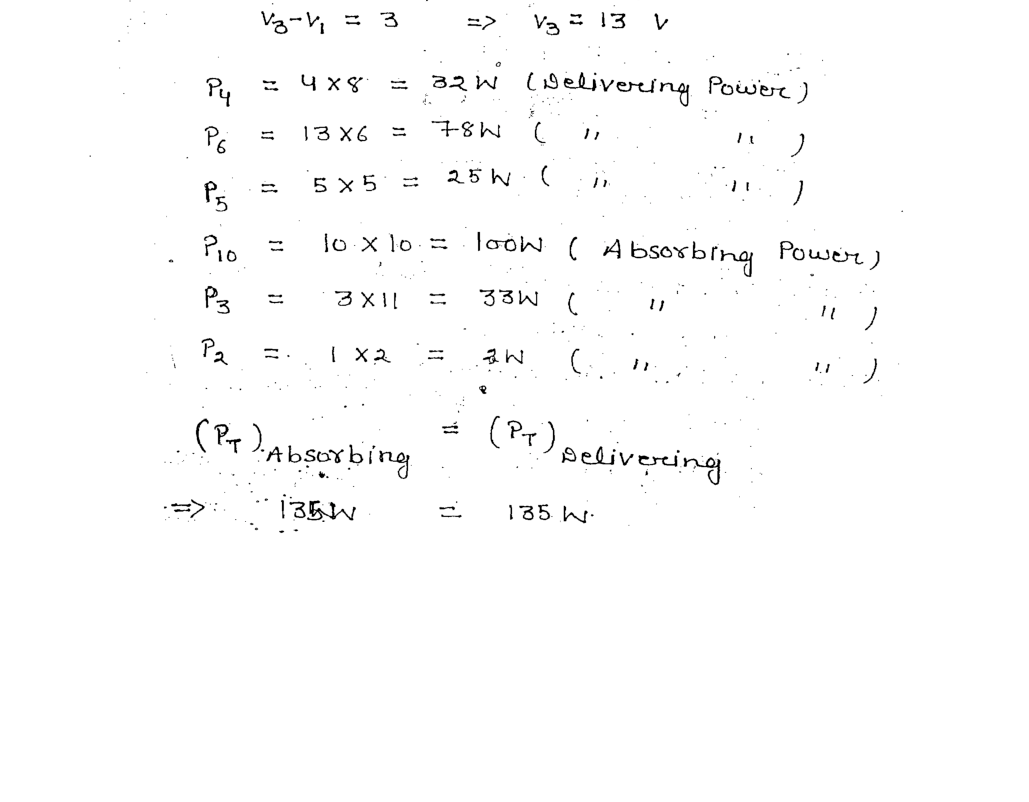 V₃-V₁ = 3 => V₃ = 13 V
P₄ = 4 X 8 = 32 W (Delivering Power)
P₆ = 13 X 6 = 78 W ( ,, ,, )
P₅ = 5 X 5 = 25 W ( ,, ,, )
P₁₀ = 10 X 10 = 100 W ( Absorbing Power)
P₃ = 3 X 11 = 33 W ( ,, ,, )
P₂ = 1 X 2 = 2 W ( ,, ,, )
(P_T) Absorbing = (P_T) Delivering
=> 135 W = 135 W.